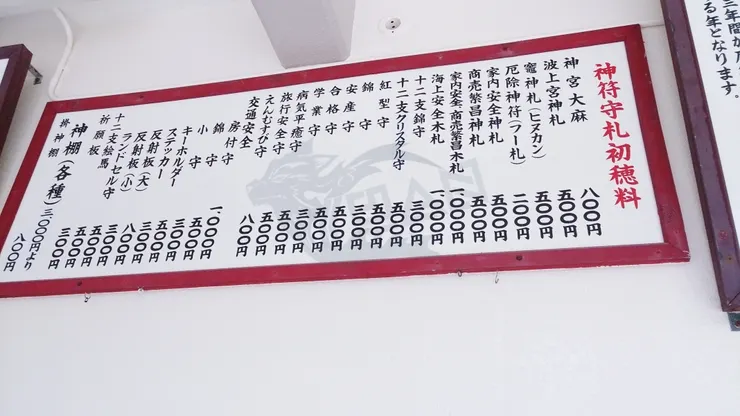 神符守札初穂料
神宮大麻 八〇〇円
波上宮神札 五〇〇円
竈神札(ヒヌカン) 五〇〇円
厄除神符(フー札) 二〇〇円
家内安全神札 五〇〇円
商売繁昌神札 五〇〇円
家内安全、商売繁昌木札 一、〇〇〇円
海上安全木札 一、〇〇〇円
十二支錦守 三〇〇円
十二支クリスタル守 五〇〇円
紅型守 五〇〇円
錦守 三〇〇円
安産守 五〇〇円
合格守 五〇〇円
学業守 五〇〇円
病気平癒守 五〇〇円
旅行安全守 五〇〇円
えんむすび守 五〇〇円
交通安全 八〇〇円
房付守 一、〇〇〇円
錦守 五〇〇円
小守 三〇〇円
キーホルダー 五〇〇円
ステッカー 五〇〇円
反射板(大) 三〇〇円
反射板(小) 八〇〇円
ランドセル守 五〇〇円
十二支絵馬 五〇〇円
祈願板 三〇〇円
神棚(各種) 三〇〇〇円より
掛神棚 八〇〇円
る年となります。